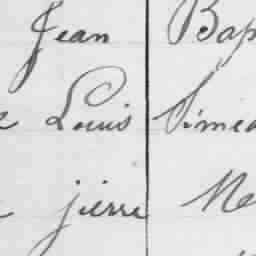 Jean Bap
Louis Simea
pierre Me